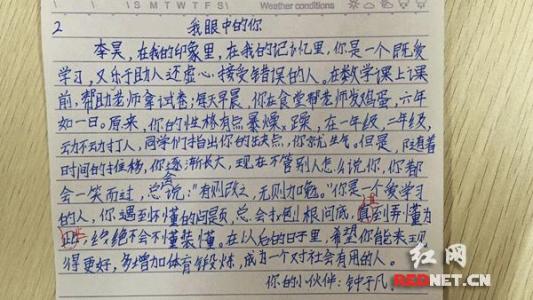 S M T W T F S Weather conditions
2
我眼中的你
李昊,在我的印象里,在我的记忆里,你是一个既爱
学习,又乐于助人还虚心接受错误的人。在数学课上课
前,帮助老师拿试卷;每天早晨,你在食堂帮老师发鸡蛋,六年
如一日。原来,你的性格有点暴燥躁,在一年级,二年级,
动不动打人,同学们指出你的缺点,你就生气。但是,随着
时间的推移,你逐渐长大,现在不管别人怎么说你,你都
会一笑而过,总会说:"有则改之,无则加勉。"你是一个爱学习
的人,你遇到不懂的问题,总会打破刨根问底,直到弄懂为
止,绝不会不懂装懂。在以后的日子里,希望你能表现
得更好,多增加体育锻炼,成为一个对社会有用的人。
你的小伙伴:钟子凡
红网
REDNET.CN